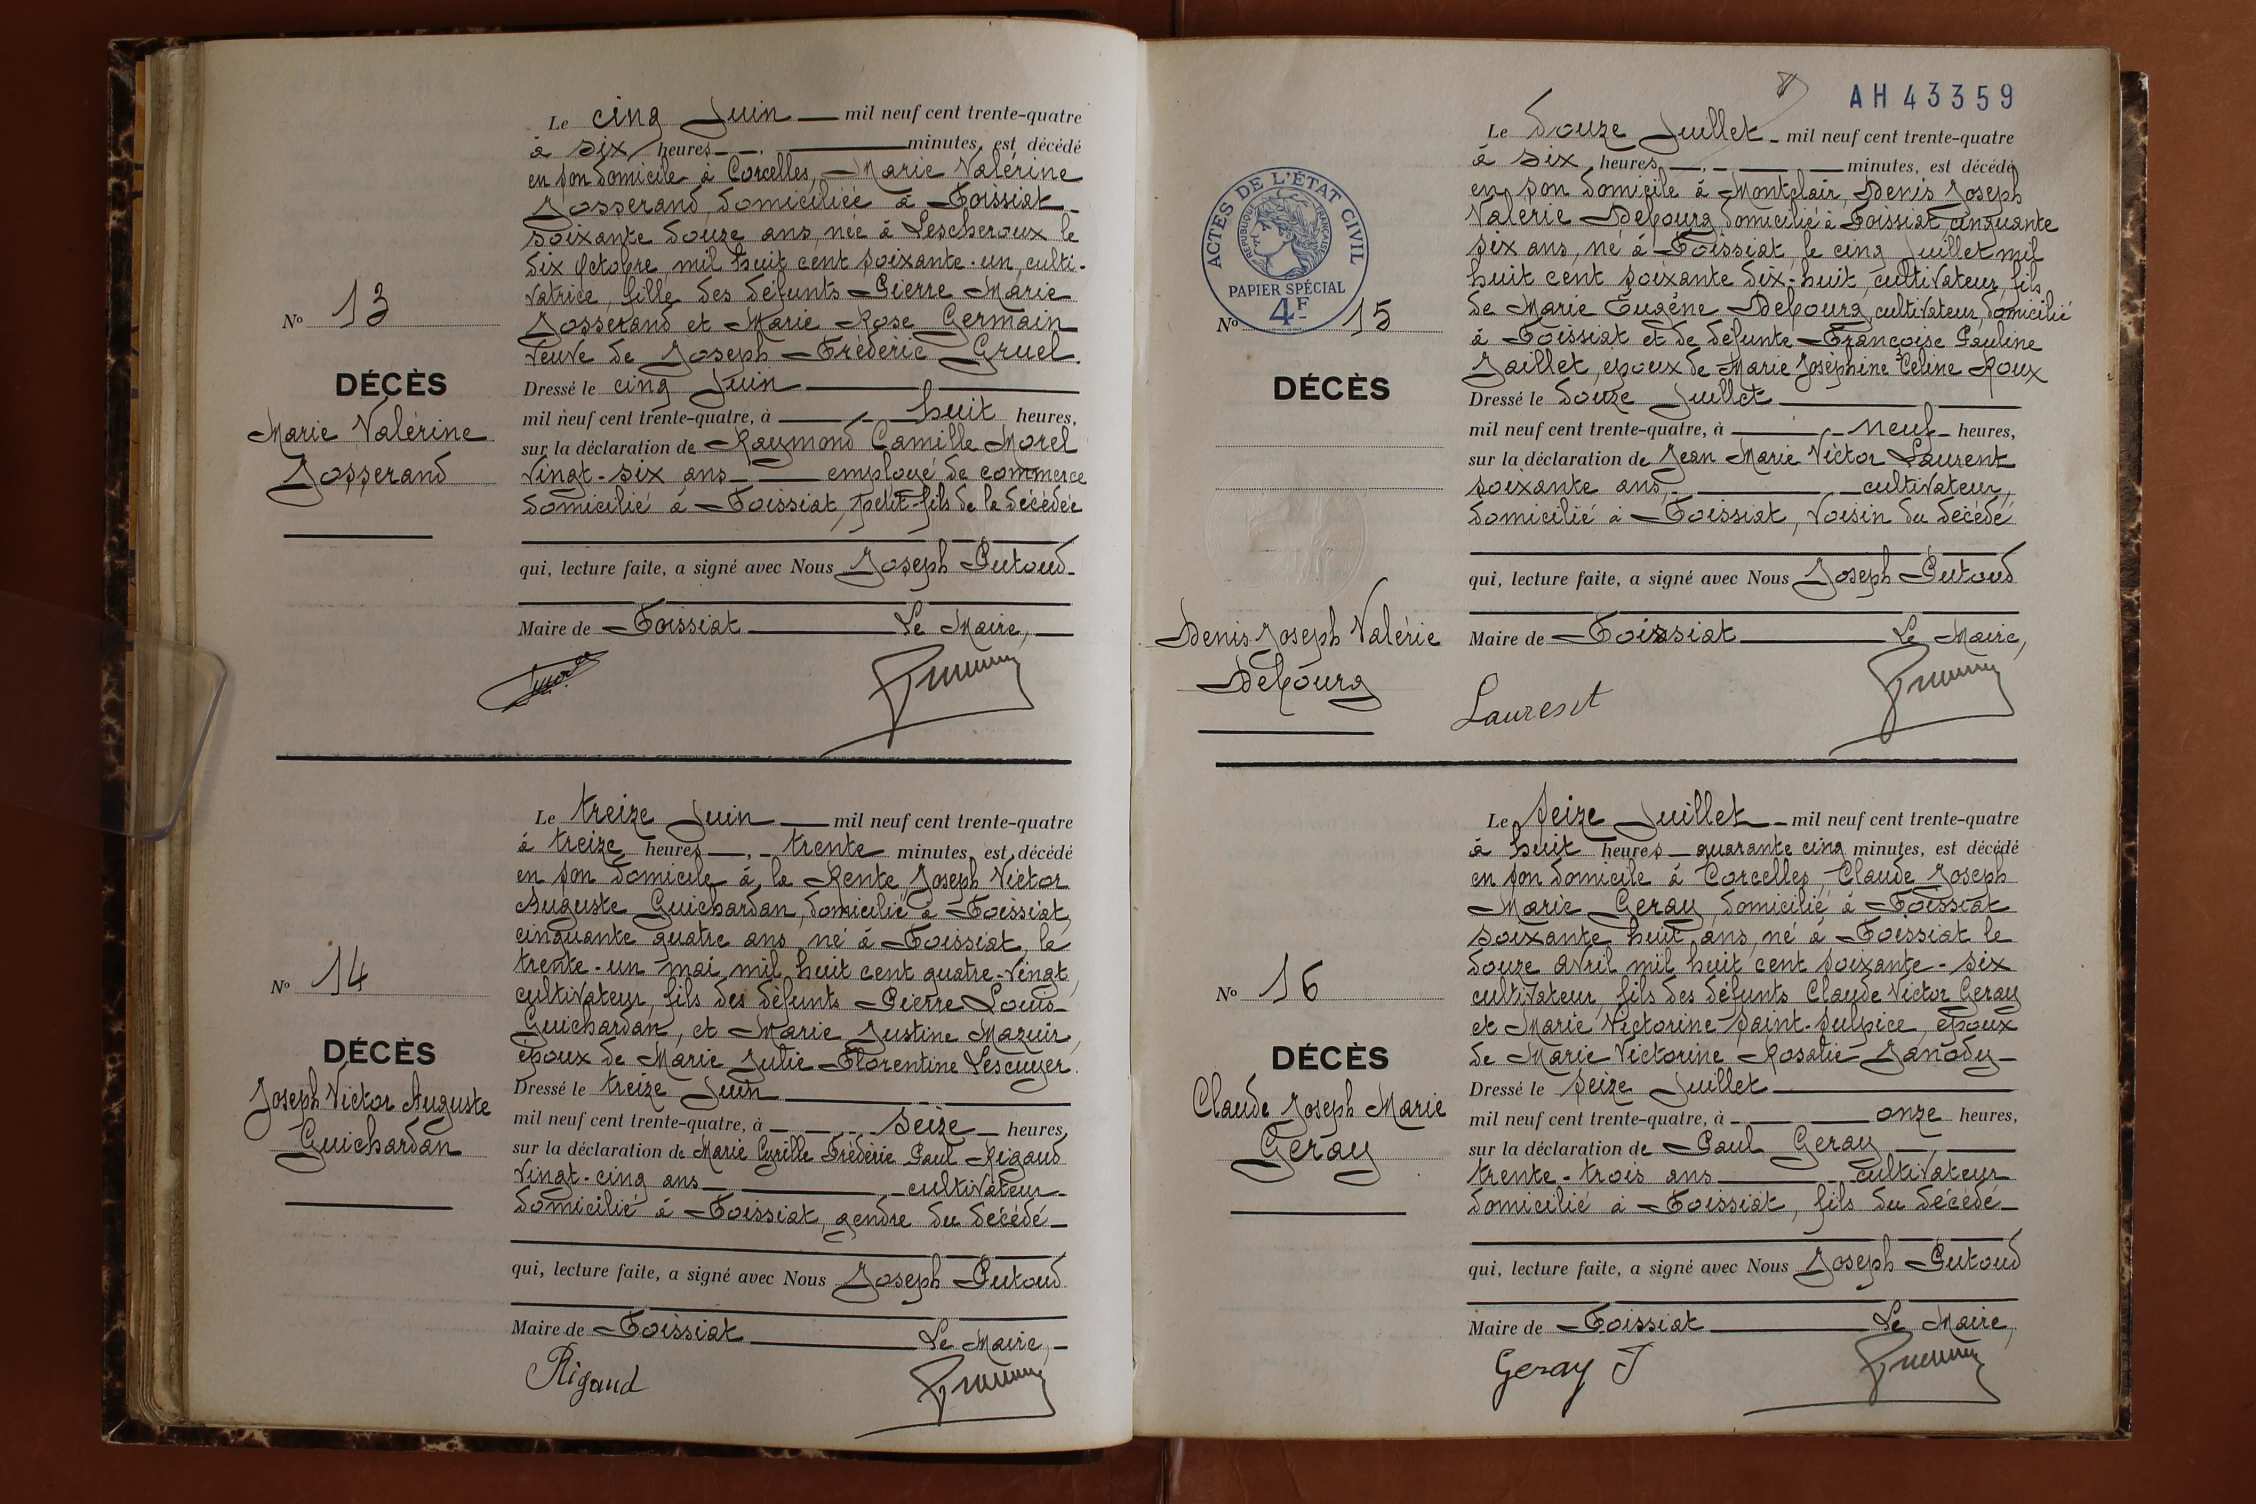 Le cinq Juin mil neuf cent trente-quatre
à six heures minutes, est décédé
en son domicile à Corcelles, Marie Valérine
Josserand, domiciliée à Foissiat
soixante douze ans, née à Lescheroux le
dix Octobre mil huit cent soixante-un, culti-
vatrice, fille des défunts Pierre Marie
Josserand et Marie Rose Germain
veuve de Joseph Frédéric Gruel.
Nº 13
DÉCÈS
Marie Valérine
Josserand
Dressé le cinq Juin
mil neuf cent trente-quatre, à huit heures,
sur la déclaration de Raymond Camille Morel
vingt-six ans employé de commerce
domicilié à Foissiat, petit-fils de la décédée
qui, lecture faite, a signé avec Nous Joseph Putoud
Maire de Foissiat Le Maire,
Le treize Juin mil neuf cent trente-quatre
à treize heures, trente minutes, est décédé
en son domicile à la Rente, Joseph Victor
Auguste Guichardan, domicilié à Foissiat,
cinquante quatre ans, né à Foissiat, le
trente-un mai mil huit cent quatre-vingt,
cultivateur, fils des défunts Pierre Louis
Guichardan, et Marie Justine Mazuir,
époux de Marie Julie Florentine Lescuyer.
Nº 14
DÉCÈS
Joseph Victor Auguste
Guichardan
Dressé le treize Juin
mil neuf cent trente-quatre, à seize heures,
sur la déclaration de Marie Cyrille Frédéric Paul Rigaud
vingt-cinq ans cultivateur
domicilié à Foissiat, gendre du décédé
qui, lecture faite, a signé avec Nous Joseph Putoud
Maire de Foissiat Le Maire,
Rigaud
AH 43359
ACTES DE L'ÉTAT CIVIL
RÉPUBLIQUE FRANÇAISE
PAPIER SPÉCIAL
4F
Le douze Juillet mil neuf cent trente-quatre
à six heures, minutes, est décédé
en son domicile à Montclair, Denis Joseph
Valérie Debourg, domicilié à Foissiat cinquante
six ans, né à Foissiat, le cinq Juillet mil
huit cent soixante dix-huit, cultivateur, fils
de Marie Eugène Debourg, cultivateur, domicilié
à Foissiat et de défunte Françoise Pauline
Jaillet, époux de Marie Joséphine Céline Roux
Nº 15
DÉCÈS
Denis Joseph Valérie
Debourg
Dressé le douze Juillet
mil neuf cent trente-quatre, à neuf heures,
sur la déclaration de Jean Marie Victor Laurent
soixante ans, cultivateur,
domicilié à Foissiat, voisin du décédé
qui, lecture faite, a signé avec Nous Joseph Putoud
Maire de Foissiat Le Maire,
Laurent
Le seize Juillet mil neuf cent trente-quatre
à huit heures quarante cinq minutes, est décédé
en son domicile à Corcelles, Claude Joseph
Marie Geray, domicilié à Foissiat
soixante huit ans, né à Foissiat le
douze avril mil huit cent soixante-six
cultivateur, fils des défunts Claude Victor Geray
et Marie Victorine Saint-Sulpice, époux
de Marie Victorine Rosalie Janody
Nº 16
DÉCÈS
Claude Joseph Marie
Geray
Dressé le seize Juillet
mil neuf cent trente-quatre, à onze heures,
sur la déclaration de Paul Geray
trente-trois ans cultivateur
domicilié à Foissiat, fils du décédé
qui, lecture faite, a signé avec Nous Joseph Putoud
Maire de Foissiat Le Maire,
Geray J